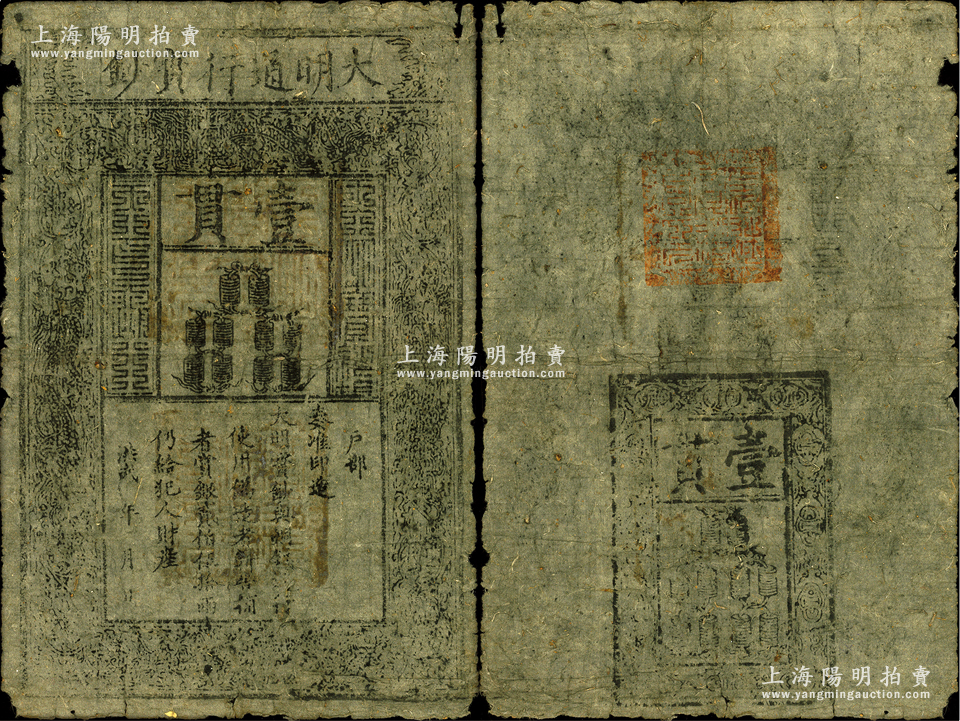 上海陽明拍賣
www.yangmingauction.com
大明通行寶鈔
壹貫
大明寶鈔
天下通行
戶部
奏准印造
大明寶鈔與銅錢通行
使用偽造者斬告捕
者賞銀貳伯伍拾兩
仍給犯人財產
洪武 年 月 日
上海陽明拍賣
www.yangmingauction.com
壹貫
上海陽明拍賣
www.yangmingauction.com